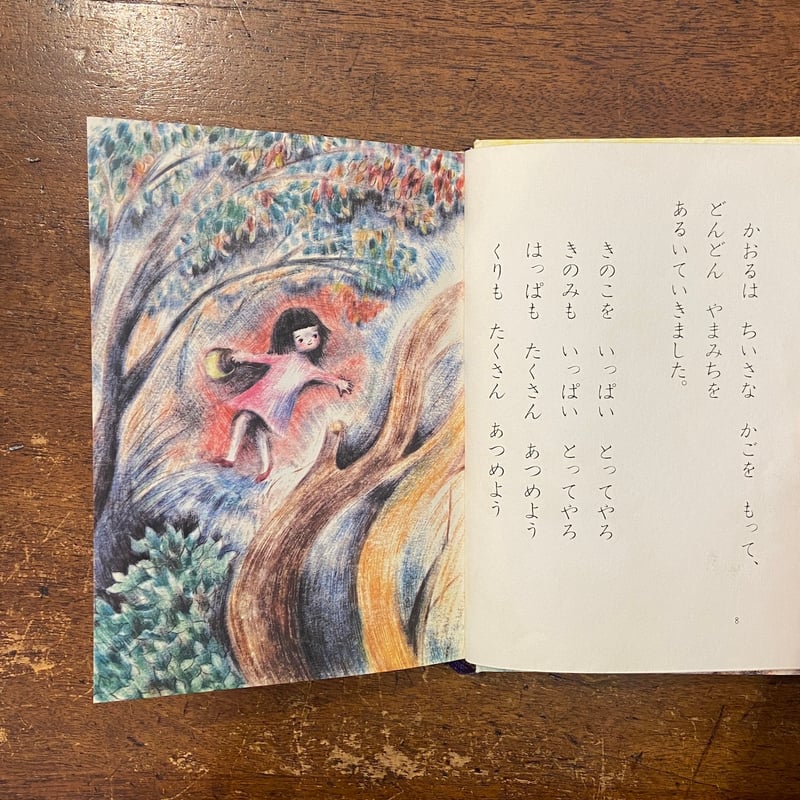 かおるは　ちいさな　かごを　もって、
どんどん　やまみちを
あるいていきました。
きのこを　いっぱい　とってやろ
きのみも　いっぱい　とってやろ
はっぱも　たくさん　あつめよう
くりも　たくさん　あつめよう
8